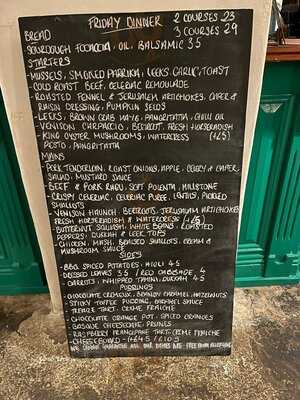 FRIDAY DINNER 2 COURSES 23
3 COURSES 29
BREAD
SOURDOUGH FOCACCIA, OIL, BALSAMIC 3.5
STARTERS
- MUSSELS, SMOKED PAPRIKA, LEEKS GARLIC, TOAST
- COLD ROAST BEEF, CELERIAC REMOULADE
- ROASTED FENNEL & JERUSALEM ARTICHOKES, CAPER &
RAISIN DRESSING, PUMPKIN SEEDS
- LEEKS, BROWN CRAB MAYO, PANGRITATTA, CHILLI OIL
- VENISON CARPACCIO, BEETROOT, FRESH HORSERADISH
- KING OYSTER MUSHROOMS, WATERCRESS (+£5)
PESTO, PANGRITATTA
MAINS
- PORK TENDERLOIN, ROAST ONIONS, APPLE, CELERY & CAPER
SALAD, MUSTARD SAUCE
- BEEF & PORK RAGU, SOFT POLENTA, MILLSTONE
- CRISPY CELERIAC, CELERIAC PUREE, LENTILS, PICKLED
SHALLOTS
- VENISON HAUNCH, BEETROOTS, JERUSALEM ARTICHOKES
FRESH HORSERADISH & WATERCRESS (+£5)
- BUTTERNUT SQUASH, WHITE BEANS, ROASTED
PEPPERS, DUKKAH & LEEK TOPS
- CHICKEN, MASH, BRAISED SHALLOTS, CREAM &
MUSHROOM SAUCE
SIDES
- BBQ SPICED POTATOES, AIOLI 4.5
- DRESSED LEAVES 3.5 / RED CABBAGE 4
- CARROTS, WHIPPED TAHINI, DUKKAH 4.5
PUDDINGS
- CHOCOLATE CREMEUX, BRANDY CARAMEL, HAZELNUTS
- STICKY TOFFEE PUDDING, CARAMEL SAUCE
- TREACLE TART, CREME FRAICHE
- CHOCOLATE ORANGE POT, SPICED ORANGES
- BASQUE CHEESECAKE, PRUNES
- RASPBERRY FRANGIPANE TART, CREME FRAICHE
- CHEESEBOARD - (+£4.5 / £10.5
WE CANNOT GUARANTEE ALL OUR DISHES ARE FREE FROM ALLERGENS